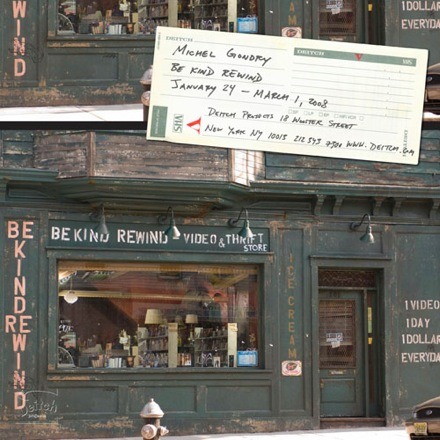 REWIND
ICE CREAM
1
DOLLAR
EVERYDAY
DEITCH
DEITCH
VHS
MICHEL GONDRY
BE KIND REWIND
JANUARY 24 – MARCH 1, 2008
DEITCH PROJECTS 18 WOOSTER STREET
NEW YORK NY 10013 212 343 7300 WWW.DEITCH.COM
VHS
BE KIND REWIND – VIDEO & THRIFT STORE
BE KIND REWIND
ICE CREAM
1 VIDEO
1 DAY
1 DOLLAR
EVERYDA
Deitch